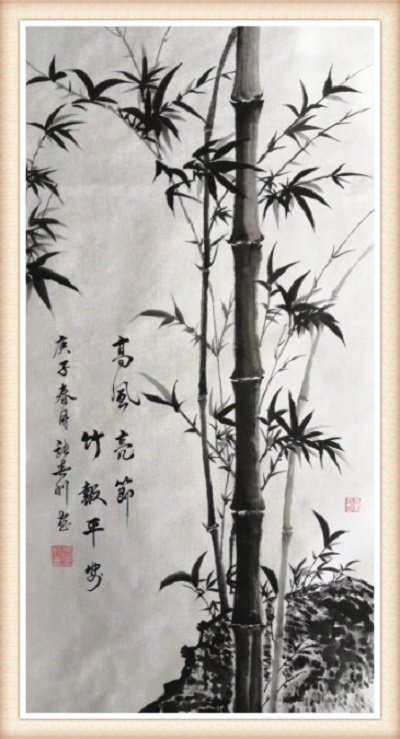 高风亮節
竹報平安
庚子春月